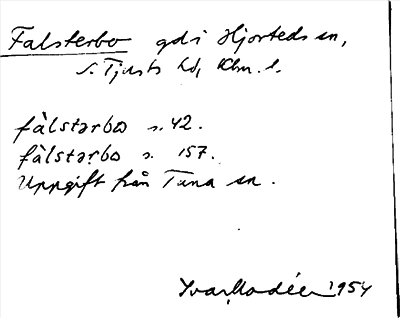 Falsterbo gd i Hjorteds sn,
S. Tjusts hd, Klm. l.
fàlstərbω s. 42.
fàlstərbω s. 157.
Uppgift från Tuna sn.
Ivar Modéer 1954